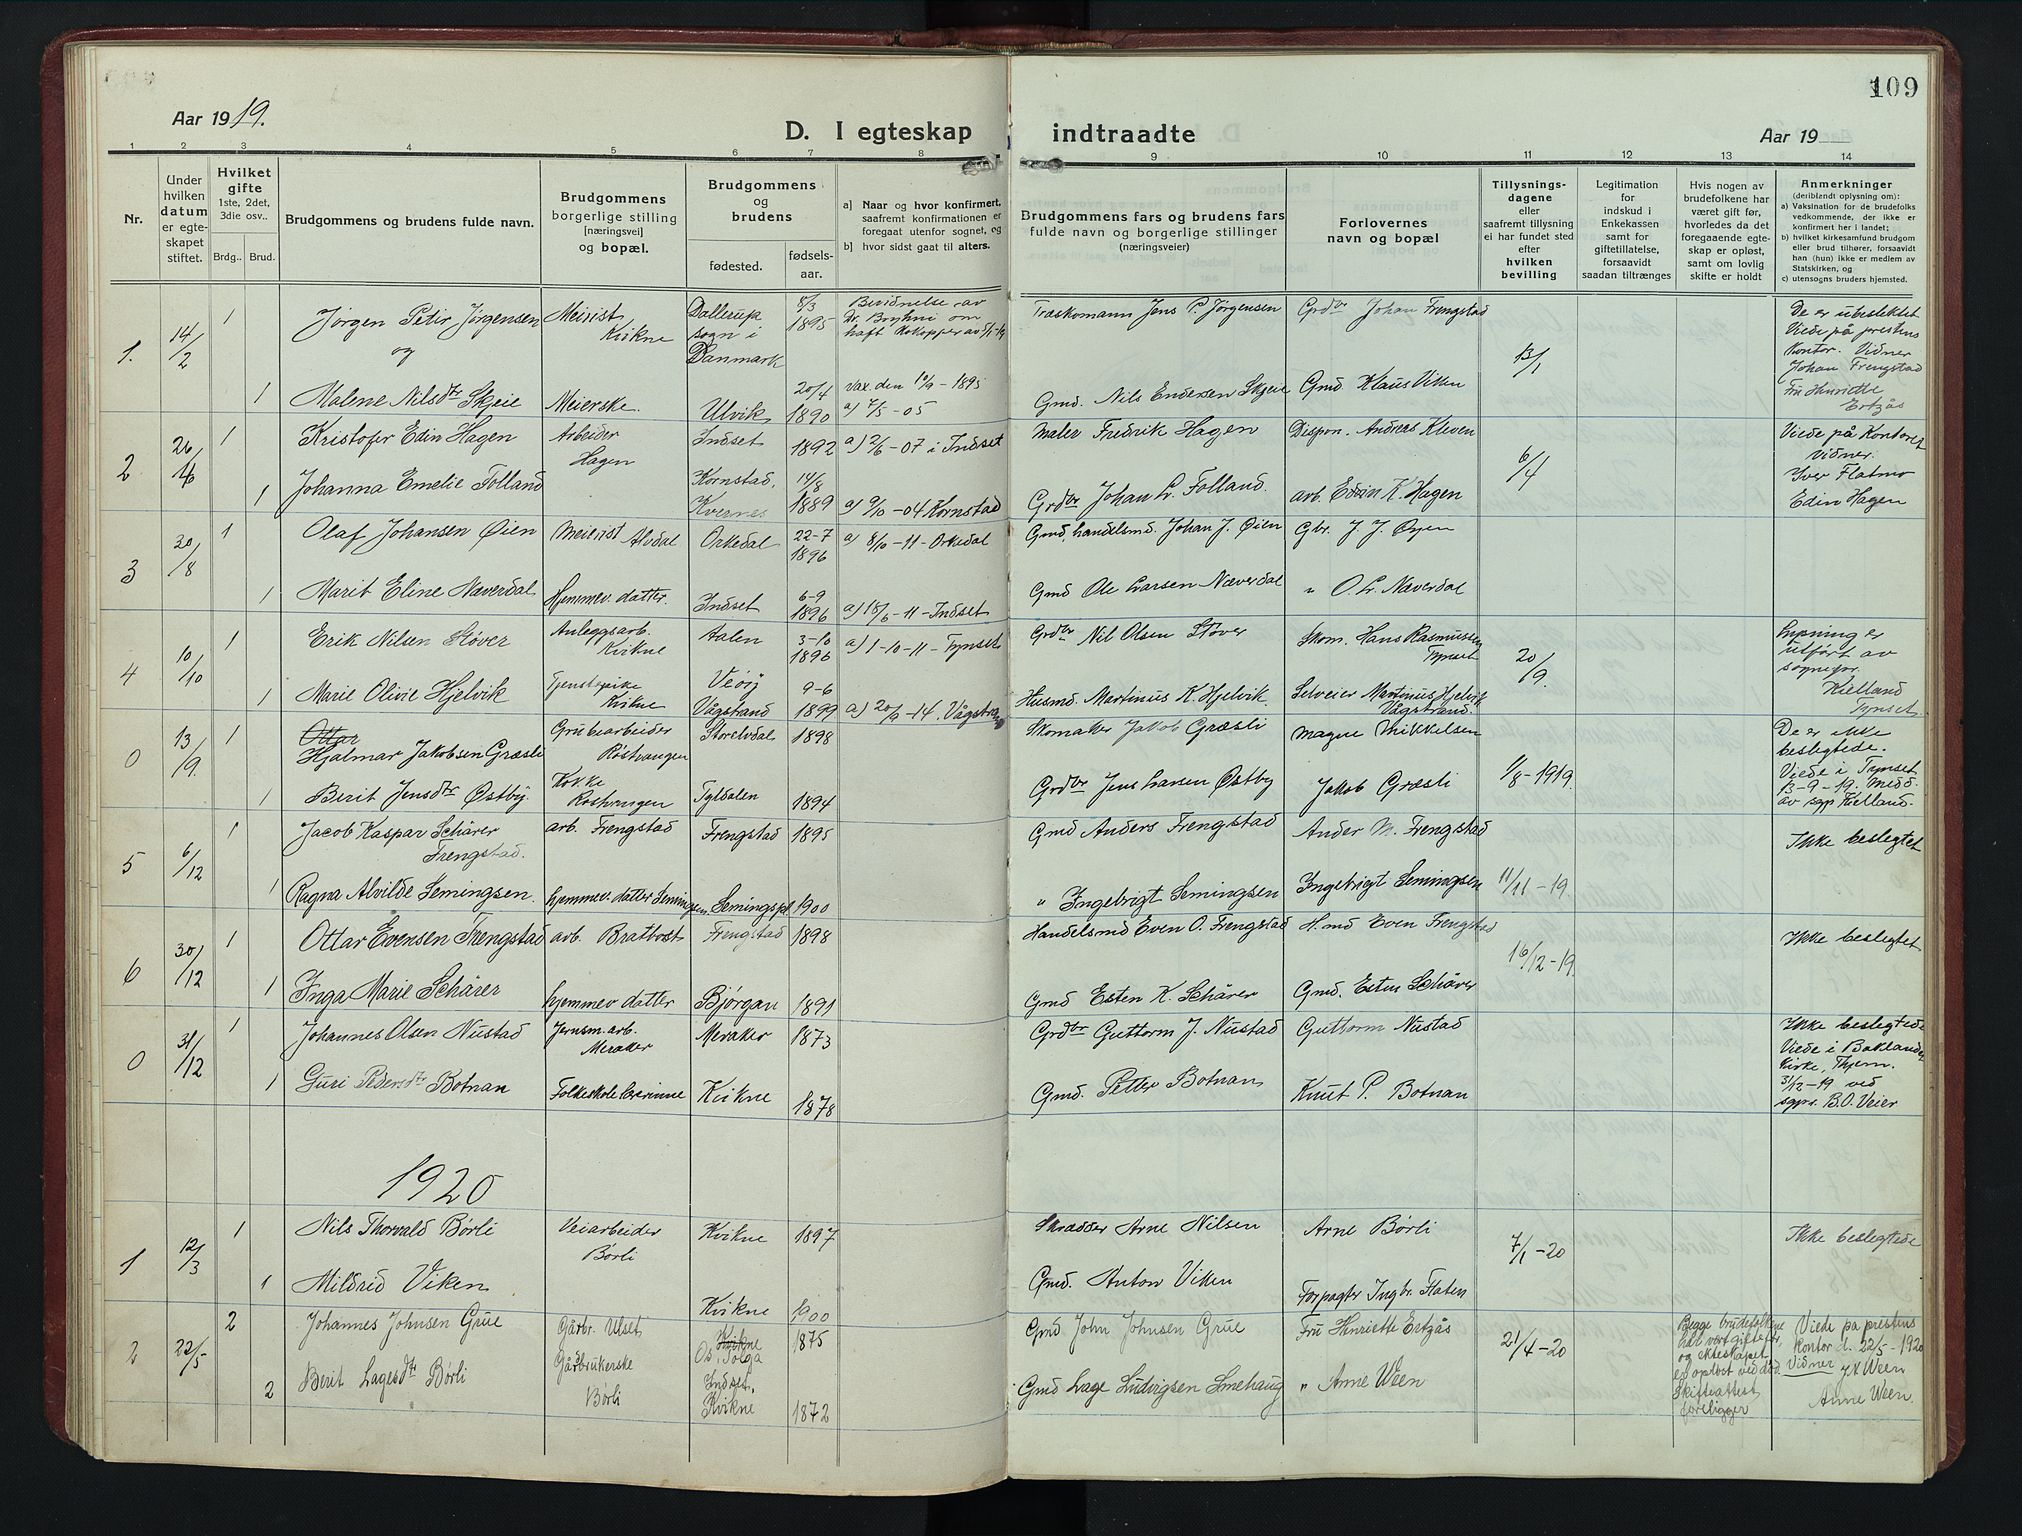 109
Aar 1919.
D. I egteskap indtraadte
Aar 19
1 2 3 4 5 6 7 8 9 10 11 12 13 14
Nr.
Under hvilken datum er egteskapet stiftet.
Hvilket gifte
1ste, 2det, 3die osv..
Brdg.. Brud.
Brudgommens og brudens fulde navn.
Brudgommens borgerlige stilling [næringsvei] og bopæl.
Brudgommens og brudens
fødested.
fødselsaar.
a) Naar og hvor konfirmert, saafremt konfirmationen er foregaat utenfor sognet, og
b) hvor sidst gaat til alters.
Brudgommens fars og brudens fars fulde navn og borgerlige stillinger (næringsveier)
Forlovernes navn og bopæl
Tillysningsdagene eller saafremt tillysning ei har fundet sted efter hvilken bevilling
Legitimation for indskud i Enkekassen samt for giftetillatelse, forsaavidt saadan tiltrænges
Hvis nogen av brudefolkene har været gift før, hvorledes da det foregaaende egteskap er opløst, samt om lovlig skifte er holdt
Anmerkninger
(deriblandt oplysning om):
a) Vaksination for de brudefolks vedkommende, der ikke er konfirmert her i landet;
b) hvilket kirkesamfund brudgom eller brud tilhører, forsaavidt han (hun) ikke er medlem av Statskirken, og
c) utensogns bruders hjemsted.
1. 14/2 1 Jørgen Peter Jørgensen Meirist Kvikne Dallerup sogn i Danmark 8/3 1895 Bevidnelse av dr. Bryhni om haft kokopper av 5/1-19 Træskomann Jens P. Jørgensen Grdbr Johan Frengstad 13/1 De er ubeslektet
og
Viede på prestens Kontor. Vidner Johan Frengstad Fru Henriette Ertzås
1 Malene Nilsdtr Skjeie Meierske. Ulvik 20/4 1890 Vax. den 10/9 - 1895 a) 7/5 - 05 Gmd. Nils Endersen Skjeie Gmd Klaus Viken
2 26/4 1 Kristofer Edin Hagen Arbeider Hagen Indset 1892 a) 2/6 - 07 i Indset Maler Fredrik Hagen Dispon. Andreas Kleven 6/4 Viede på Kontoret vidner. Iver Flatmo Edin Hagen
1 Johanna Emelie Folland Kornstad, Kvernes 14/8 1889 a) 9/10 - 04 Kornstad Grdbr Johan Lr. Folland. arb. Edin K. Hagen
3 30/8 1 Olaf Johansen Øien Meierist Alvdal Orkedal 22-7 1896 a) 8/10 - 11 - Orkedal Gmd, handelsmd. Johan J. Øien Gbr. J J. Øyen
1 Marit Eline Næverdal Hjemmev. datter. Indset 6-9 1896 a) 18/6 - 11 - Indset Gmd Ole Larsen Næverdal " O. L. Næverdal
4 10/10 1 Erik Nilsen Støver Anleggsarb. Kvikne Aalen 3-10 1896 a) 1-10-11 - Tynset Grdbr Nil Olsen Støver Skom. Hans Rasmussen Tynset 20/9. Lysning er utført av sognepr. Kielland Tynset.
1 Marie Olivie Hjelvik Tjenstepike Kvikne Veøy Vågstrand 9-6 1899 a) 20/9 - 14. Vågstrand Husmd. Martinus K. Hjelvik. Selveier Martinus Hjelvik Vågstrand.
0 13/9. 1 Ottar Hjalmar Jakobsen Græsli Grubearbeider Røstvangen Storelvdal 1898 Skomaker Jakob Græsli Magne Mikkelsen 11/8 - 1919. De er ikke beslegtede. Viede i Tynset 13-9-19. Medd. av sgp Kielland.
1 Berit Jensdtr Østby. Kokke Røstvangen Tyldalen 1894 Grdbr Jens Larsen Østby Jakob Græsli
5 6/12 1 Jacob Kaspar Schärer Frengstad. arb. Frengstad Frengstad 1895 Gmd Anders Frengstad Ander M. Frengstad 11/11 - 19. Ikke beslegtet
1 Ragna Alvilde Semingsen. hjemmev. datter Semingspl. Semingspl 1900 " Ingebrigt Semingsen Ingebrigt Semingsen
6 30/12 1 Ottar Evensen Frengstad arb. Brattvost Frengstad 1898 Handelsmd Even O. Frengstad H.md Even Frengstad 16/12 - 19. Ikke beslegtet
1 Inga Marie Schärer hjemmev datter Bjørgan 1891 Gmd Esten K. Schärer Gmd. Esten Schärer
0 31/12 1 Johannes Olsen Nustad Jernsm. arb. Meraker Meraker 1873 Grdbr Guttorm J. Nustad Guttorm Nustad Ikke beslegtede Viede i Baklandes Kirke, Thjem. 31/12-19 ved sgpr. B.O. Veier
1 Guri Pedersdtr Botnan Folkeskolelærerinne Kvikne 1878 Gmd. Petter Botnan Knut P. Botnan
1920
1 12/3 1 Nils Thorvald Børli Veiarbeider Børli Kvikne 1897 Skrædder Arne Nilsen Arne Børli 7/1 - 20 Ikke beslegtede
1 Mildrid Viken Kvikne 1900 Gmd. Anton Viken Forpagter Ingbr. Flaten
2 22/5 2 Johannes Johnsen Grue Gårbr. Ulset Kvikne Os, Tolga 1875 Gmd John Johnsen Grue Fru Henriette Ertzås 21/4 - 20 Begge brudefolkene har vært gifte før, og ekteskapet er opløst ved død. Skifteattest foreligger Viede pa prestens kontor d. 22/5 - 1920 Vidner Ween Anne Ween.
2 Berit Lagesdtr Børli Gårdbrukerske Børli Indset, Kvikne 1872 Gmd Lage Ludvigsen Smehaug " Anne Ween